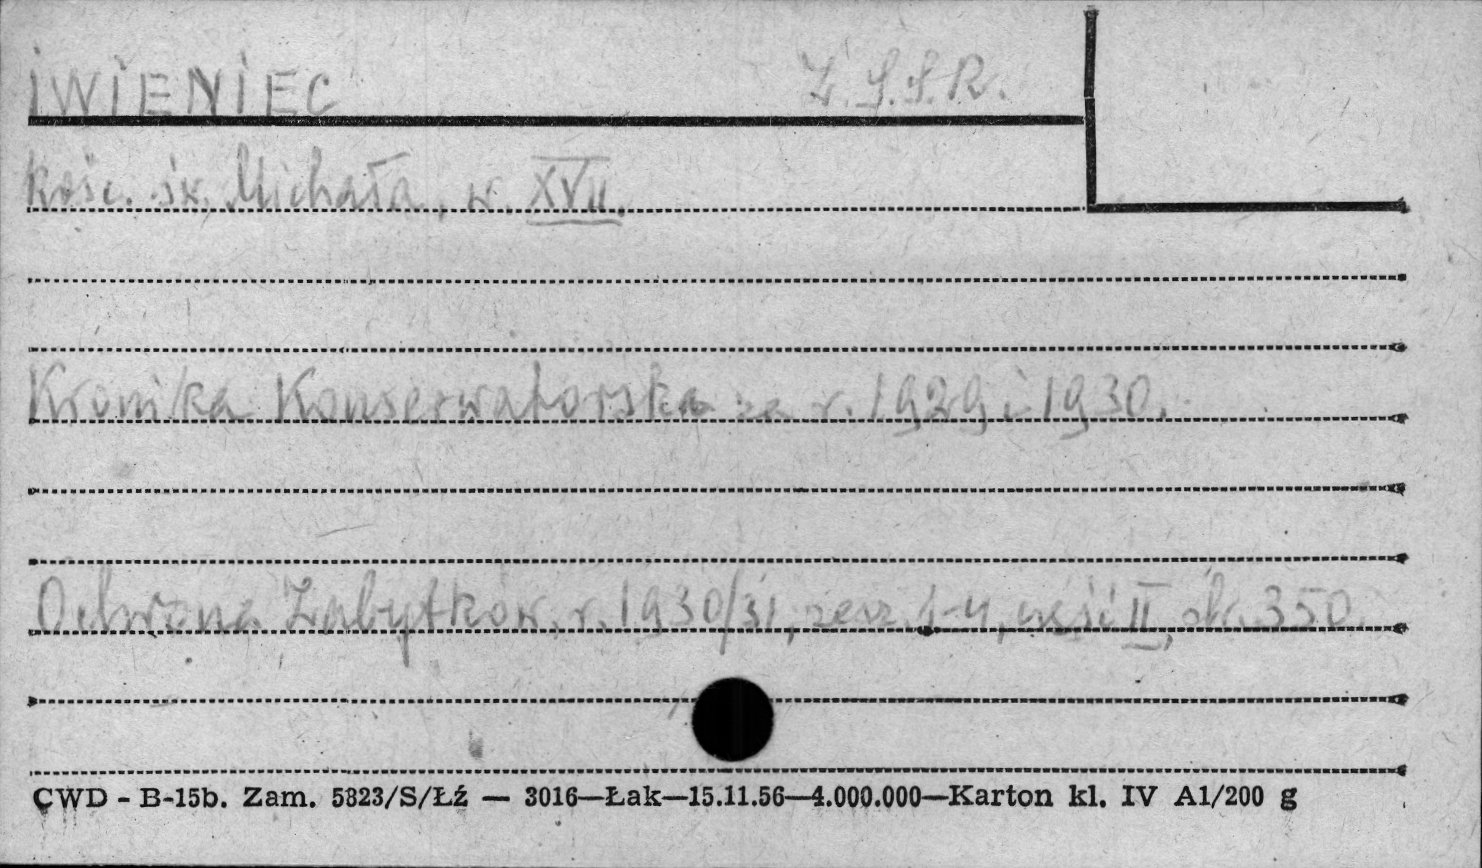 IWIENIEC Z.S.S.R.
Kośc. św. Michała, w. XVII.
Kronika Konserwatorska za r. 1929 i 1930.
Ochrona Zabytków, r. 1930/31, zesz. 1-4, część II, str. 350.
CWD - B-15b. Zam. 5823/S/Łź — 3016—Łak—15.11.56—4.000.000—Karton kl. IV A1/200 g